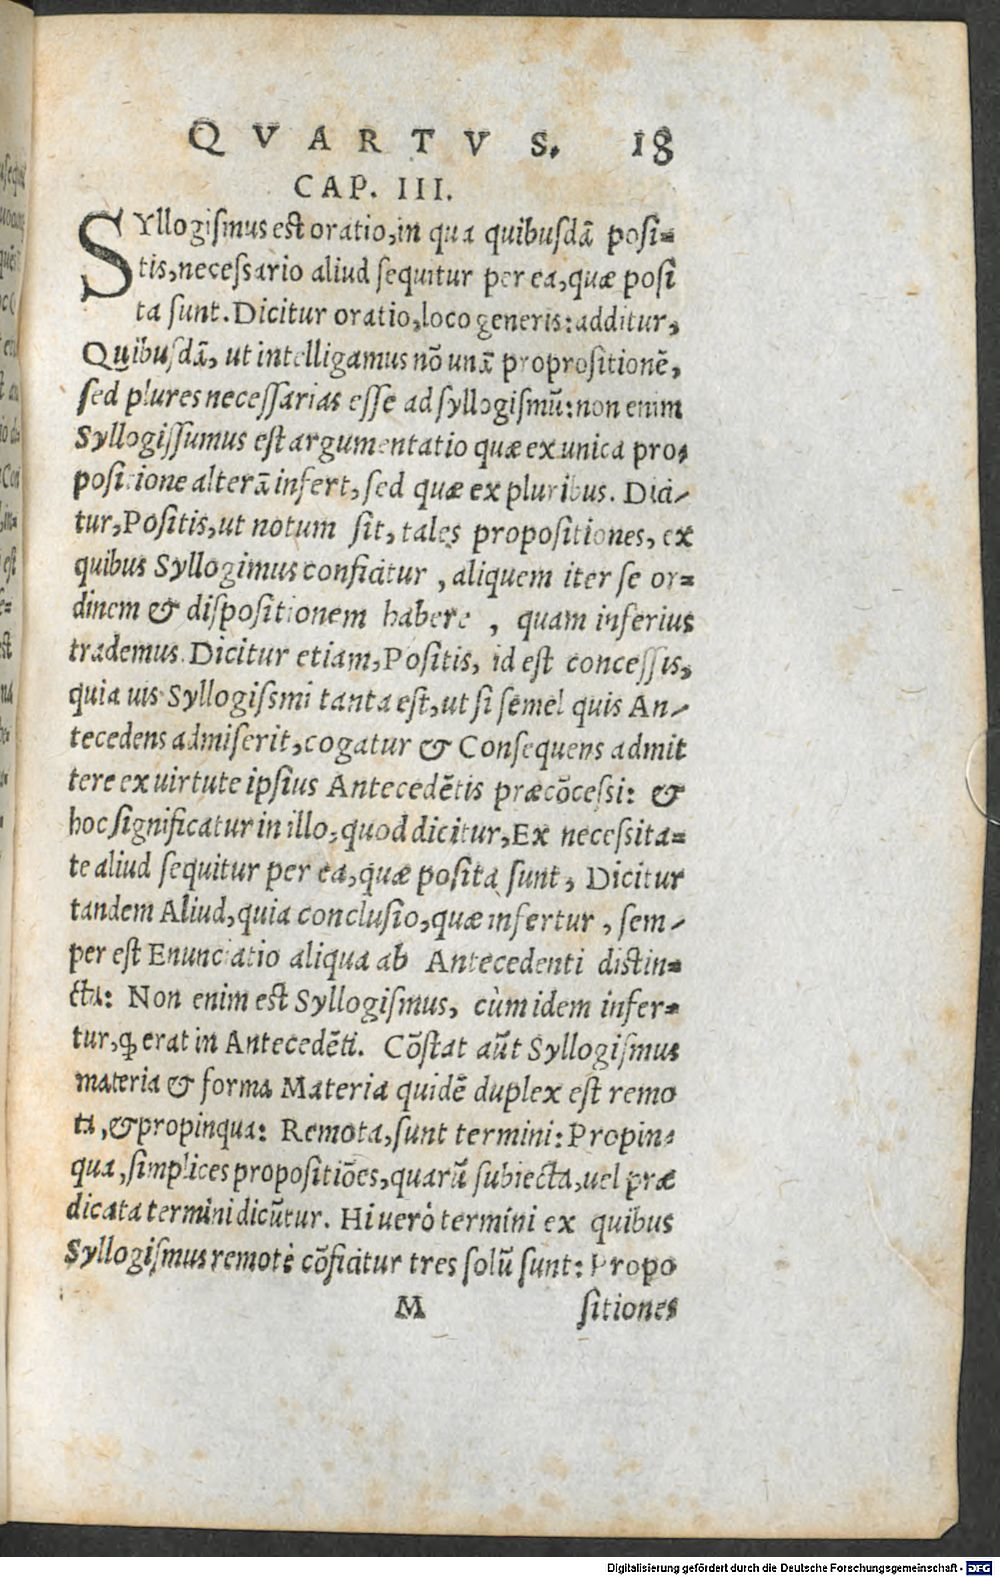 QVARTVS. 18
CAP. III.
SYllogiſmus eſt oratio, in qua quibuſdā poſi-
tis, neceſsario aliud ſequitur per ea, quæ poſi
ta ſunt. Dicitur oratio, loco generis: additur,
Quibuſdā, ut intelligamus nō unā proproſitionē,
ſed plures neceſſarias eſſe ad ſyllogiſmū: non enim
Syllogiſſumus eſt argumentatio quæ ex unica pro-
poſitione alterā infert, ſed quæ ex pluribus. Dici-
tur, Poſitis, ut notum ſit, tales propoſitiones, ex
quibus Syllogimus conficitur, aliquem iter ſe or-
dinem & diſpoſitionem habere, quam inferius
trademus. Dicitur etiam, Poſitis, id eſt conceſſis,
quia uis Syllogiſsmi tanta eſt, ut ſi ſemel quis An-
tecedens admiſerit, cogatur & Conſequens admit
tere ex uirtute ipſius Antecedētis præcōceſsi: &
hoc ſignificatur in illo, quod dicitur, Ex neceſsita-
te aliud ſequitur per ea, quæ poſita ſunt, Dicitur
tandem Aliud, quia concluſio, quæ infertur, ſem-
per eſt Enunciatio aliqua ab Antecedenti diſtin-
cta: Non enim eſt Syllogiſmus, cùm idem infer-
tur, ꝙ erat in Antecedēti. Cōſtat aūt Syllogiſmus
materia & forma Materia quidē duplex eſt remo
ta, & propinqua: Remota, ſunt termini: Propin-
qua, ſimplices propoſitiōes, quarū ſubiecta, uel præ
dicata termini dicūtur. Hi uerò termini ex quibus
Syllogiſmus remotè cōficitur tres ſolū ſunt: Propo
M ſitiones
Digitalisierung gefördert durch die Deutsche Forschungsgemeinschaft - DFG